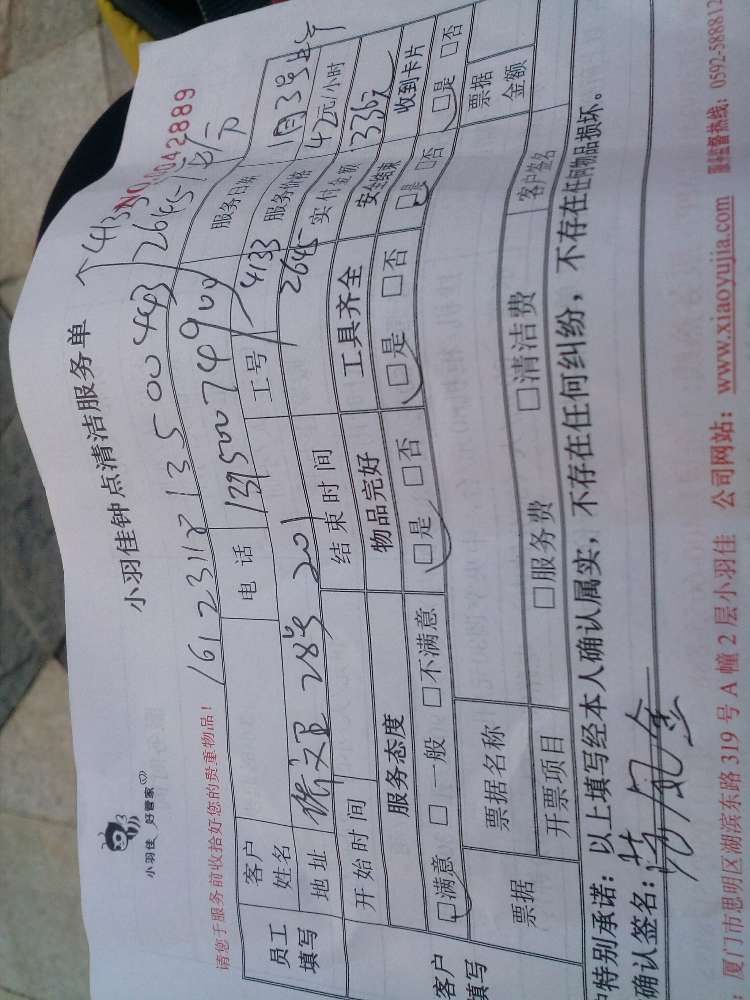 小羽佳 好管家
小羽佳钟点清洁服务单
NO.0042889
请您于服务前收拾好您的贵重物品！
1612311213500443
2645
员工填写
客户姓名
电话 13950074900
服务日期
地址 201
工号 4133 2645
服务价格 42元/小时
开始时间
结束时间
实付金额 336元
客户填写
服务态度
物品完好
工具齐全
安全结束
收到卡片
□满意 □一般 □不满意
□是 □否
□是 □否
□是 □否
□是 □否
票据
票据名称
票据金额
开票项目
□服务费
□清洁费
客户签名
特别承诺：以上填写经本人确认属实，不存在任何纠纷，不存在任何物品损坏。
确认签名：
厦门市思明区湖滨东路 319 号 A 幢 2 层小羽佳 公司网站：www.xiaoyujia.com 服务监督热线：0592-5888812